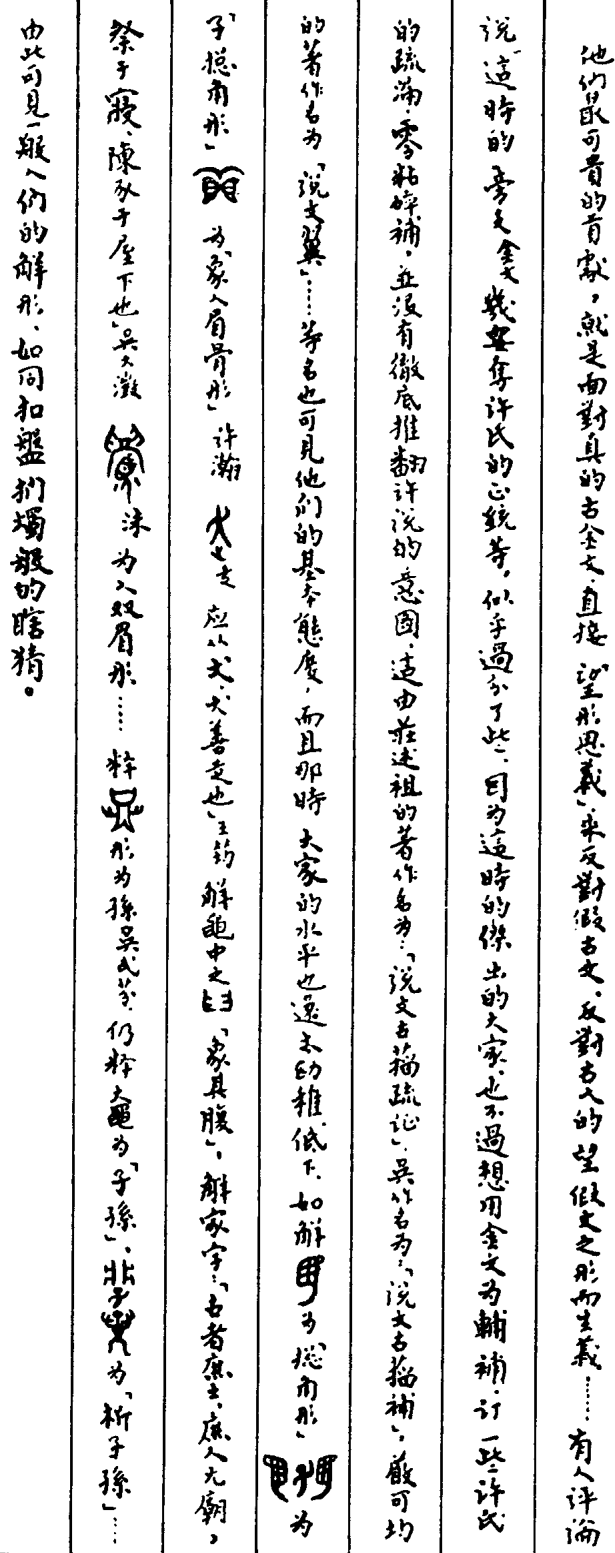 他们最可貴的貢獻，就是面對真的古金文，直接「望形思義」，來反對假古文，反對古人的望假文之形而生義……有人评論
说“這時的金文幾要奪许氏的正統等，似乎過分了些，因为這時的傑出的大家，也不過想用金文为輔補，订一些许氏
的疏漏，零粘碎補，並没有徹底推翻许说的意图，這由莊述祖的著作名为：「说文古籀疏证」，吴作名为：「说文古籀補」，嚴可均
的著作名为「说文翼」……等名也可見他们的基本態度，而且那時大家的水平也還未幼稚低下，如解为「揔角形」为
子「揔角形」为「象人眉骨形」许瀚走应从犬，犬善走也」王筠解龜中之「象其腹」，解家字：「古者庶士，庶人无廟，
祭于寢，陳豕于屋下也」吴大澂沬为人双眉形……释形为孫吴式芬仍释大黽为「子孫」，为「析子孫」……
由此可見一般人们的解形，如同扣盤捫燭般的瞎猜。